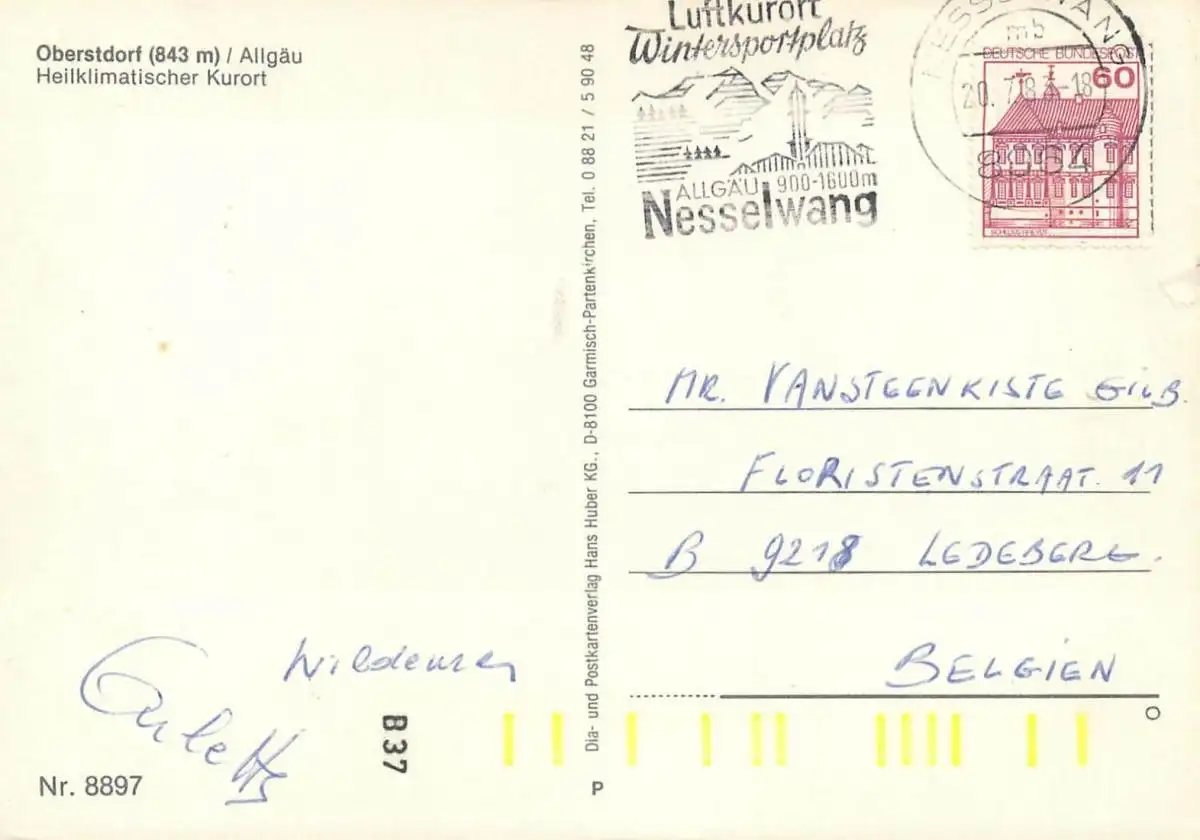 Oberstdorf (843 m) / Allgäu
Heilklimatischer Kurort
Luftkurort
Wintersportplatz
ALLGÄU 900-1600m
Nesselwang
NESSELWANG
mb
DEUTSCHE BUNDESPOST
60
Dia- und Postkartenverlag Hans Huber KG., D-8100 Garmisch-Partenkirchen, Tel. 0 88 21 / 5 90 48
MR. VANSTEENKISTE GILB.
FLORISTENSTRAAT. 11
B 9218 LEDEBERG.
BELGIEN
B 37
Nr. 8897
P